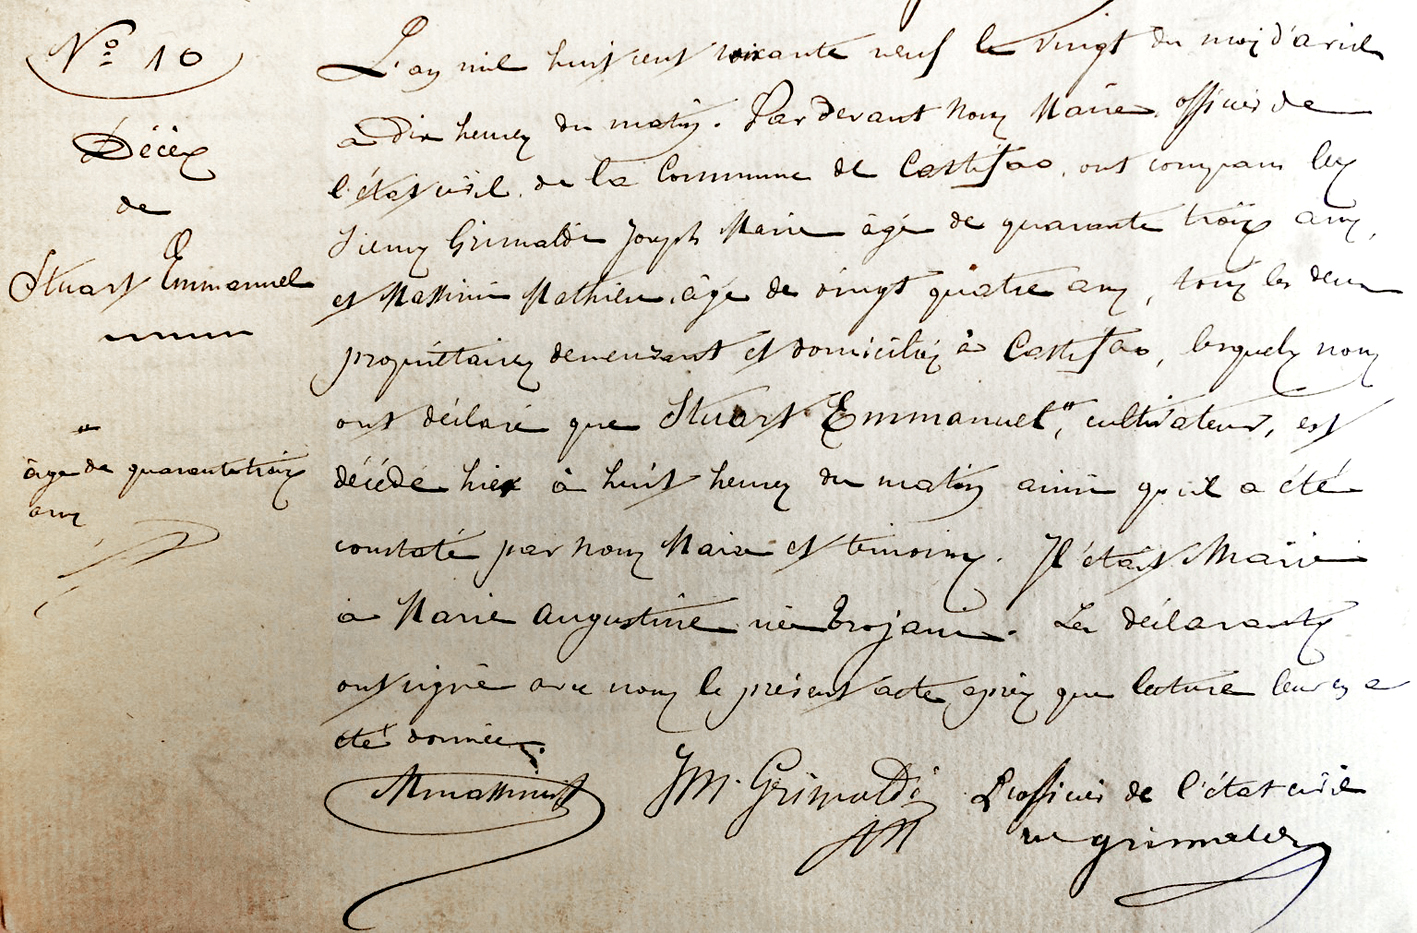 N° 10
Décès
de
Stuart Emmanuel
âgé de quarante trois
ans
L'an mil huit cent soixante neuf le vingt du mois d'avril
à dix heures du matin. Par devant nous Maire officier de
l'état civil de la Commune de Castifao, ont comparu les
sieurs Grimaldi Joseph Marie âgé de quarante trois ans,
et Massimi Mathieu, âgé de vingt quatre ans, tous les deux
propriétaires demeurant et domiciliés à Castifao, lesquels nous
ont déclaré que Stuart Emmanuel", cultivateur, est
décédé hier à huit heures du matin ainsi qu'il a été
constaté par nous Maire et témoins. Il était Marié
à Marie Augustine née Trojani. Les déclarants
ont signé avec nous le présent acte après que lecture leur en a
été donnée.
Mmassimi JM. Grimaldi L'officier de l'état civil
grimaldi